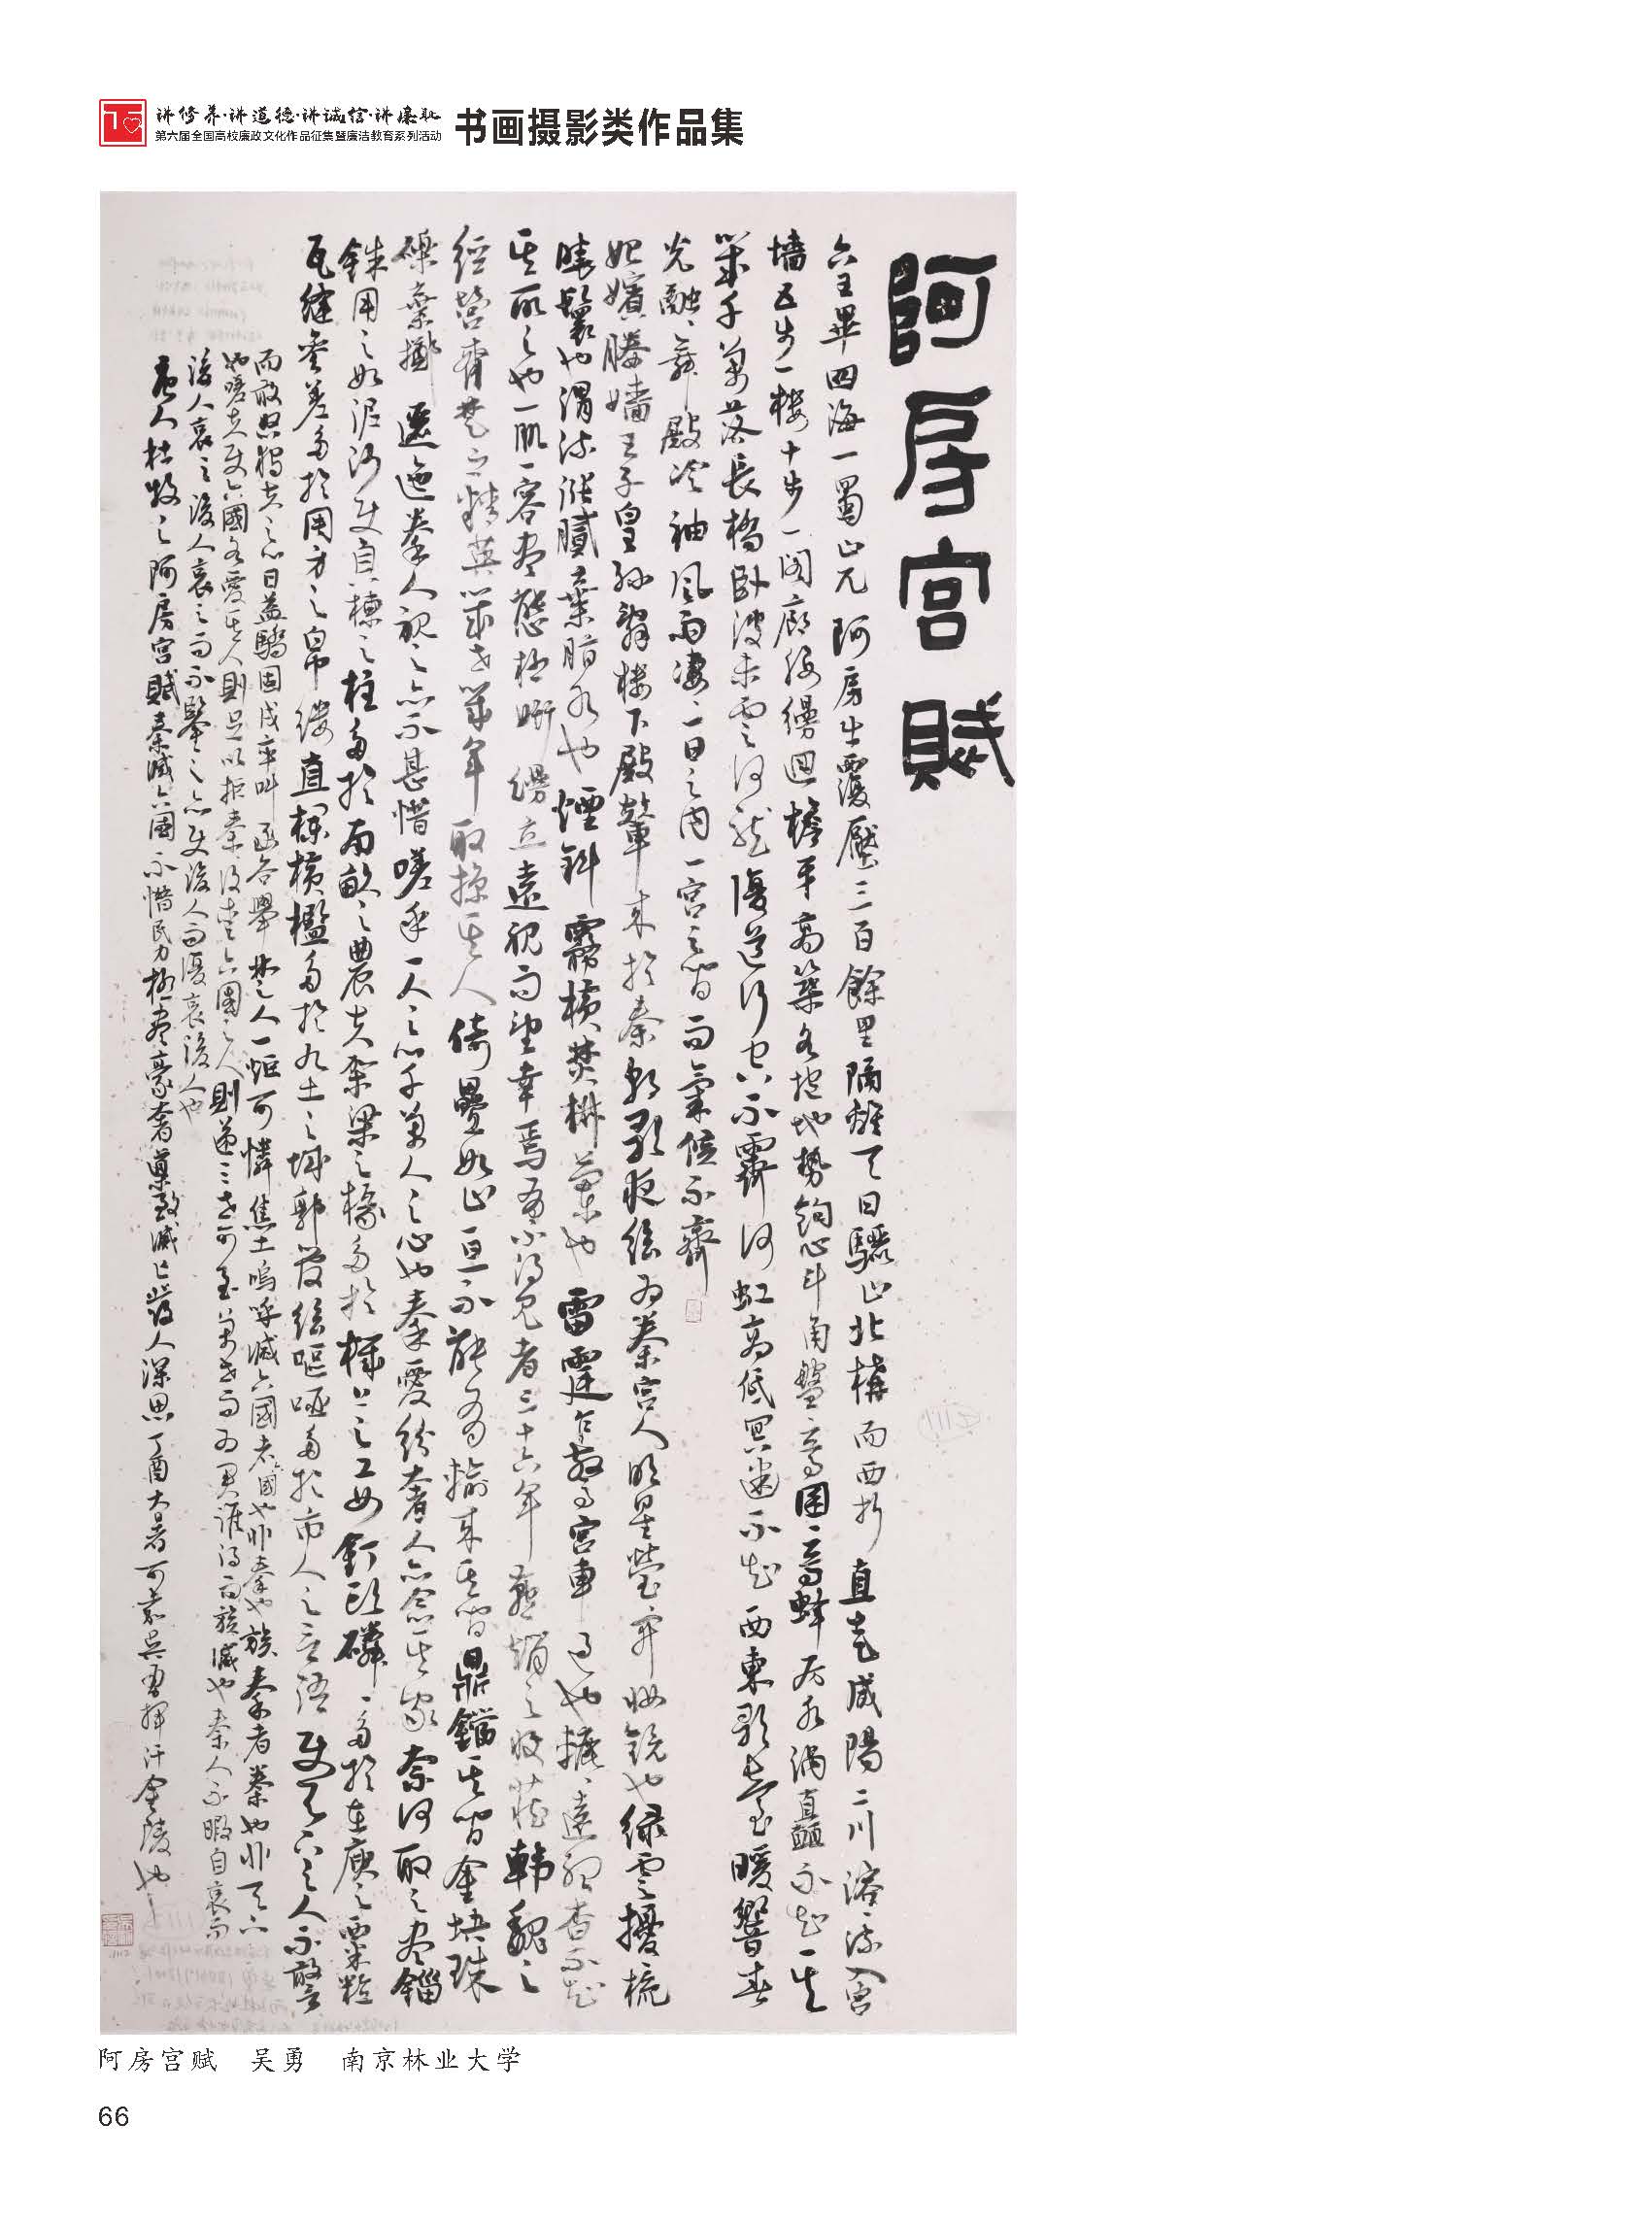 讲修养·讲道德·讲诚信·讲廉耻
第六届全国高校廉政文化作品征集暨廉洁教育系列活动
书画摄影类作品集
阿房宫賦
六王畢四海一蜀山兀阿房出覆壓三百餘里隔離天日驪山北構而西折直走咸陽二川溶溶流入宮
墻五步一樓十步一閣廊腰縵迴檐牙高築各抱地勢鉤心斗角盤盤焉囷囷焉蜂房水渦矗不知其
幾千萬落長橋臥波未雲何龍復道行空不霽何虹高低冥迷不知西東歌臺暖響春
光融融舞殿冷袖風雨淒淒一日之內一宮之間而氣候不齊
妃嬪媵嬙王子皇孫辭樓下殿輦來於秦朝歌夜絃為秦宮人明星熒熒開妝鏡也绿雲擾擾梳
曉鬟也渭流漲膩棄脂水也煙斜霧橫焚椒蘭也雷霆乍驚宮車過也轆轆遠聽杳不知
其所之也一肌一容盡態極妍縵立遠視而望幸焉有不得見者三十六年燕趙之收藏韓魏之
經營齊楚之精英幾世幾年取掠其人倚疊如山一旦不能有輸來其間鼎鐺玉石金塊珠
礫棄擲邐迤秦人視之亦不甚惜嗟乎一人之心千萬人之心也秦愛紛奢人亦念其家奈何取之盡錙
銖用之如泥沙使負棟之柱多於南畝之農夫架梁之椽多於機上之工女釘頭磷磷多於在庾之粟粒
瓦縫參差多於周身之帛縷直欄橫檻多於九土之城郭管絃嘔啞多於市人之言語使天下之人不敢言
而敢怒獨夫之心日益驕固戍卒叫函谷舉楚人一炬可憐焦土嗚呼滅六國者六國也非秦也族秦者秦也非天下
也嗟夫使六國各愛其人則足以拒秦使秦復愛六國之人則遞三世可至萬世而為君誰得而族滅也秦人不暇自哀而
後人哀之後人哀之而不鑒之亦使後人而復哀後人也
唐人杜牧之阿房宮賦秦滅六國不惜民力極盡豪奢驟致滅亡發人深思丁酉大暑可嘉吳勇揮汗金陵也
阿房宫赋 吴勇 南京林业大学
66